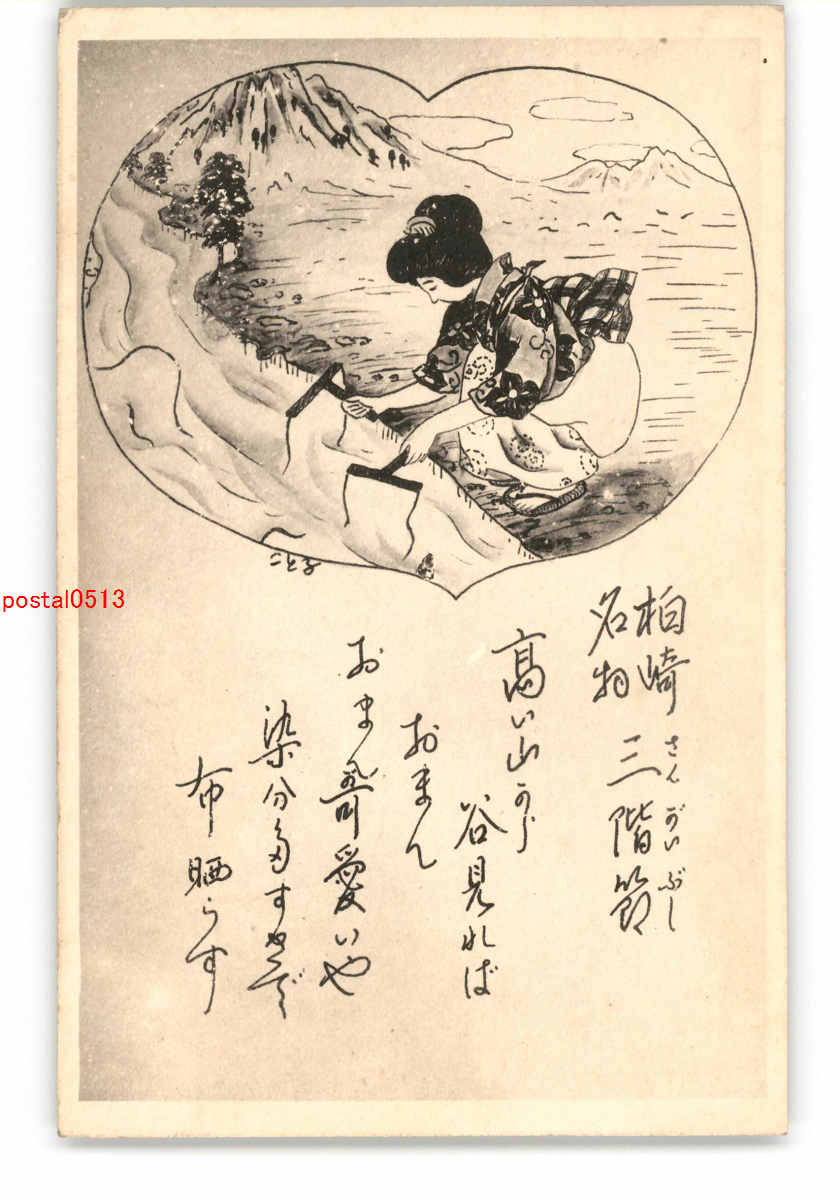 柏崎
名物
三階節
さんがいぶし
高い山から
谷見れば
おまん
おまん可愛いや
染分たすきで
布晒らす
postal0513